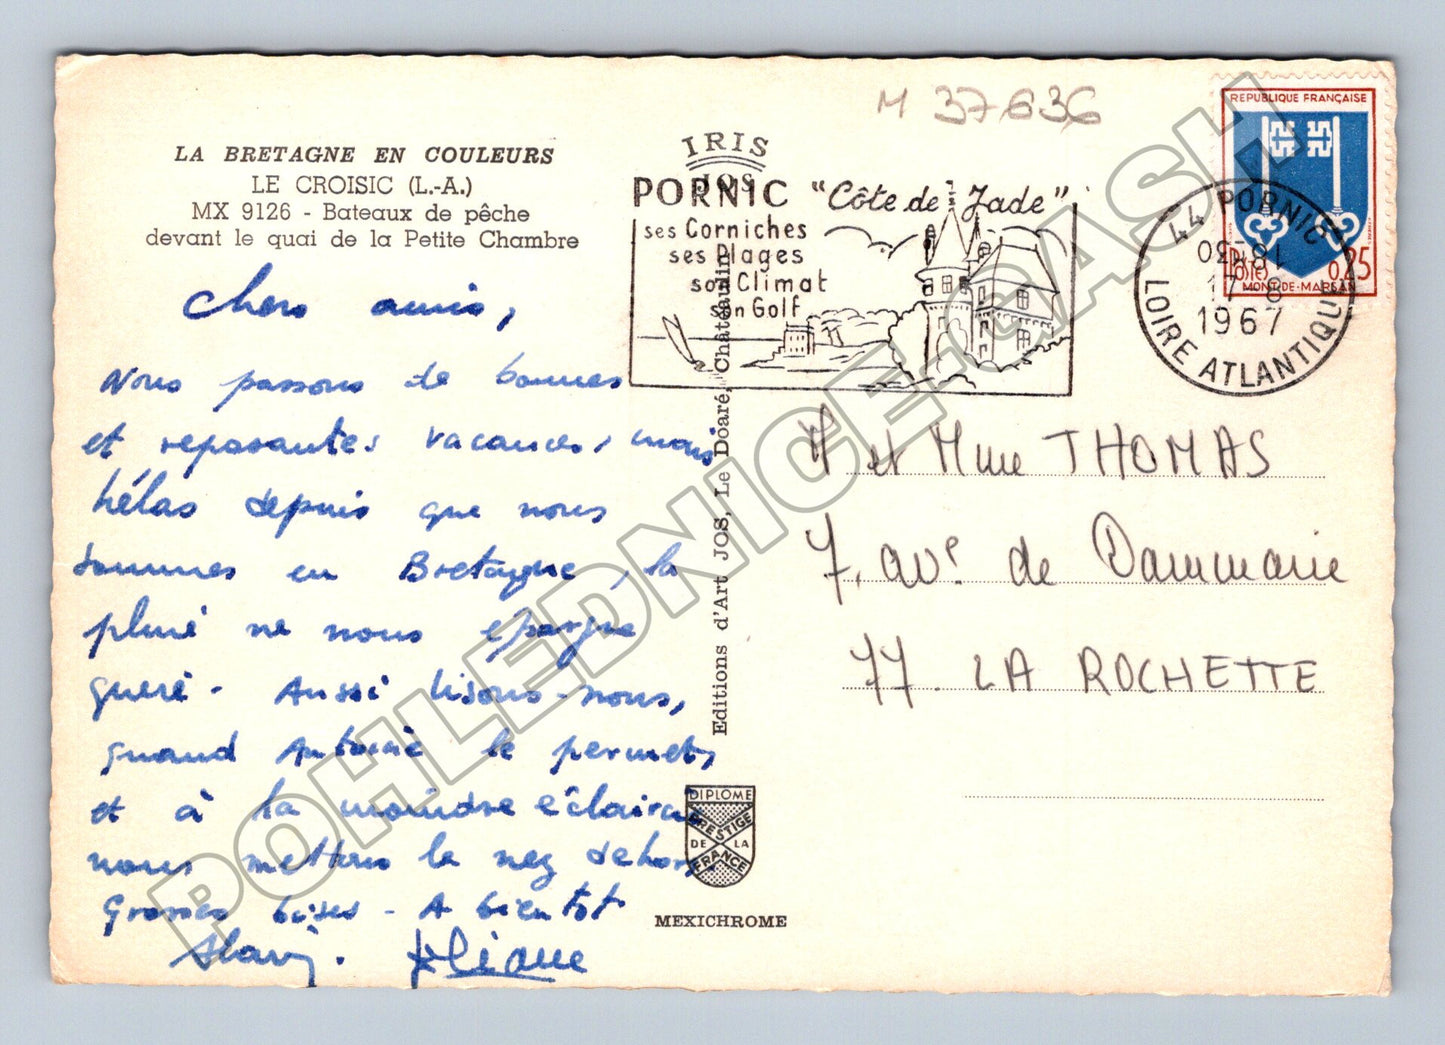 M 37636
LA BRETAGNE EN COULEURS
LE CROISIC (L.-A.)
MX 9126 - Bateaux de pêche
devant le quai de la Petite Chambre
IRIS
JOS
PORNIC "Côte de Jade"
ses Corniches
ses Plages
son Climat
son Golf
REPUBLIQUE FRANÇAISE
POSTES 0,25
MONT-DE-MARSAN
44 PORNIC
18H30
17-8
1967
LOIRE ATLANTIQUE
Chers amis,
Nous passons de bonnes
et reposantes vacances, mais
hélas depuis que nous
sommes en Bretagne, la
pluie ne nous épargne
guère. Aussi lisons-nous,
quand Antoine le permet,
et à la moindre éclaircie
nous mettons le nez dehors.
Grosses bises - A bientôt
Eliane
M et Mme THOMAS
7, av. de Dammarie
77. LA ROCHETTE
Editions d'Art JOS, Le Doaré, Châteaulin
DIPLOME
PRESTIGE
DE LA
FRANCE
MEXICHROME
POHLEDNICE-GASH